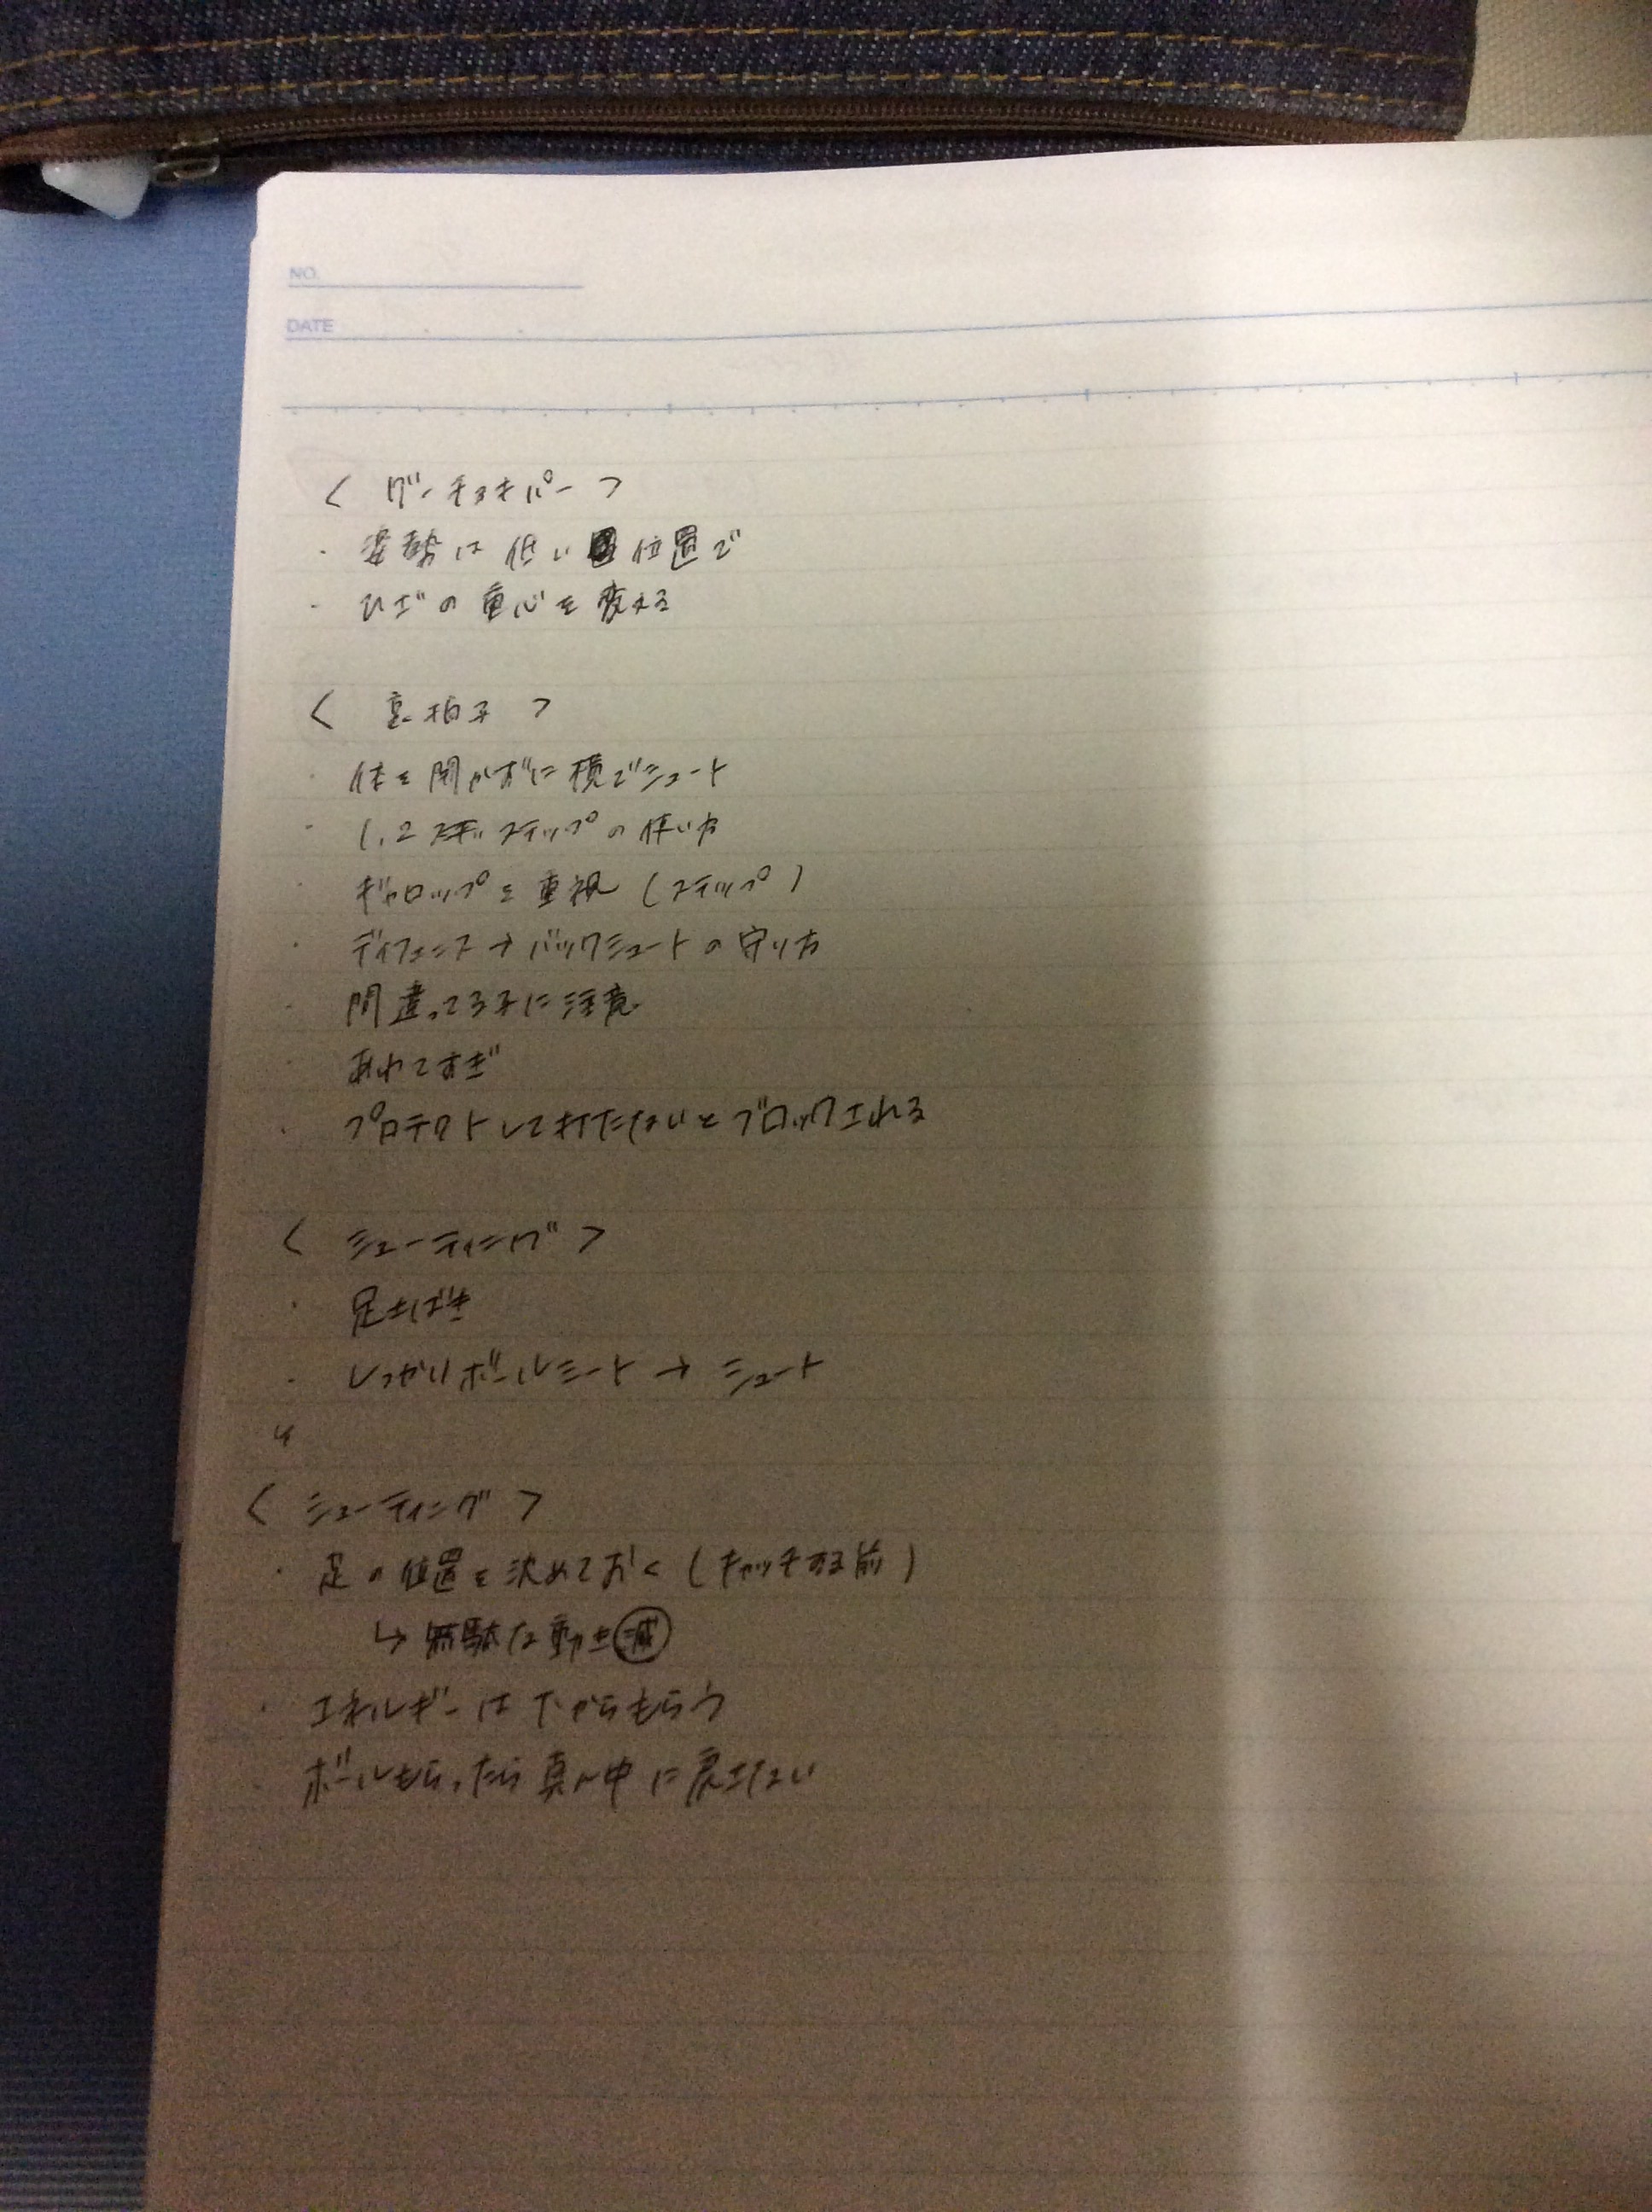 NO.
DATE
< グーチョキパー >
・ 姿勢は低い位置で
・ ひざの重心を変える
< 裏拍子 >
・ 体を開かずに横でシュート
・ 1.2 ステップの使い方
・ ギャロップを重視 (ステップ)
・ ディフェンス → バックシュートの守り方
・ 間違ってる子に注意
・ あわてすぎ
・ プロテクトして打たないとブロックされる
< シューティング >
・ 足さばき
・ しっかりボールミート → シュート
< シューティング >
・ 足の位置を決めておく (キャッチする前)
↳ 無駄な動き減
・ エネルギーは下からもらう
・ ボールもらったら真ん中に戻さない